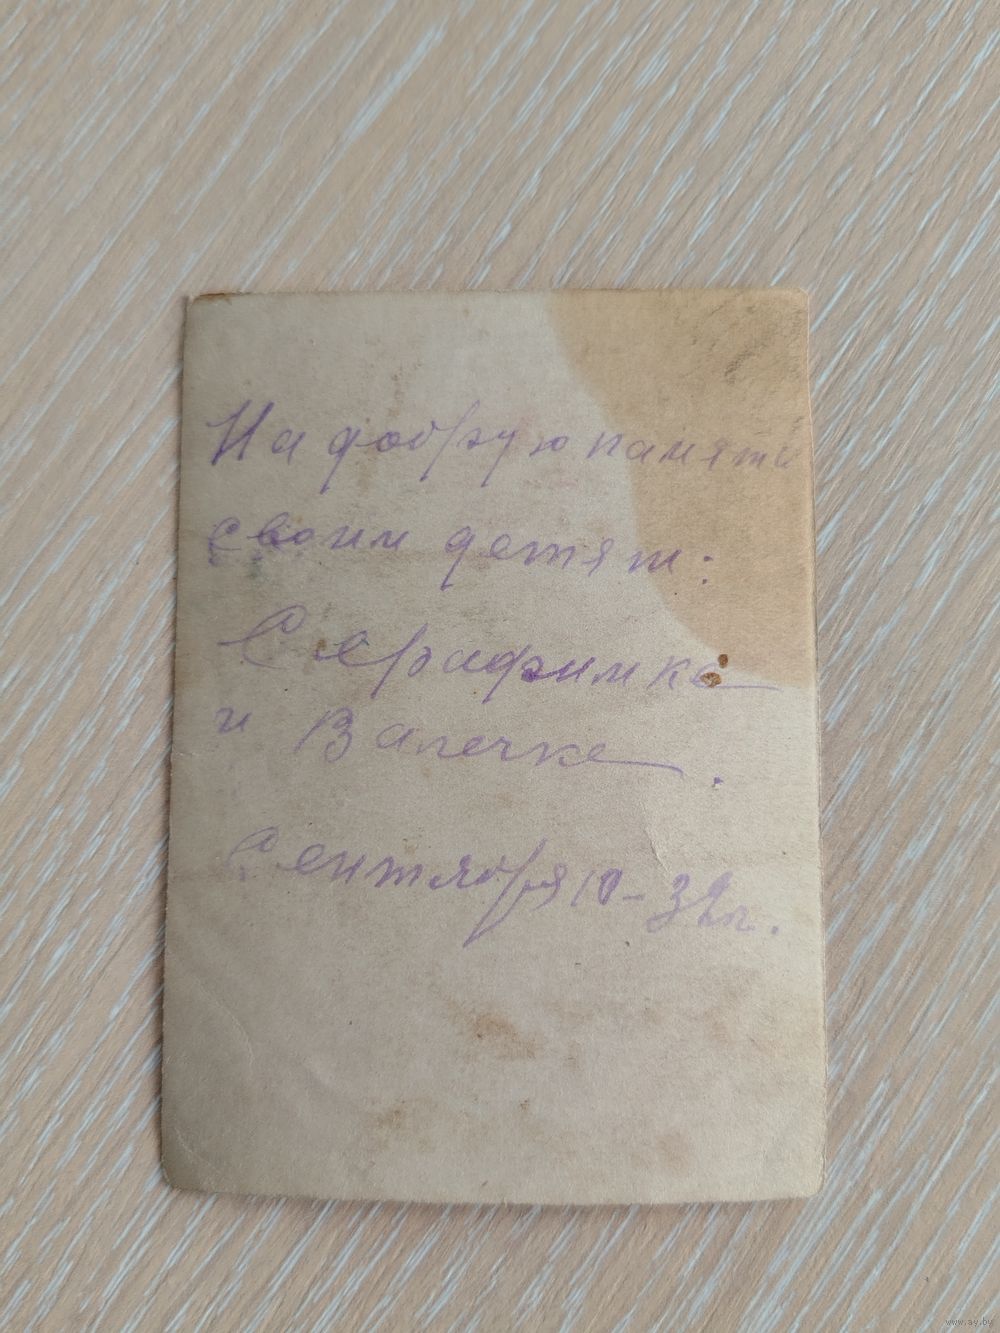 На добрую память
своим детям:
Серафимке
и Валечке.
Сентября 10-32г.
www.ay.by